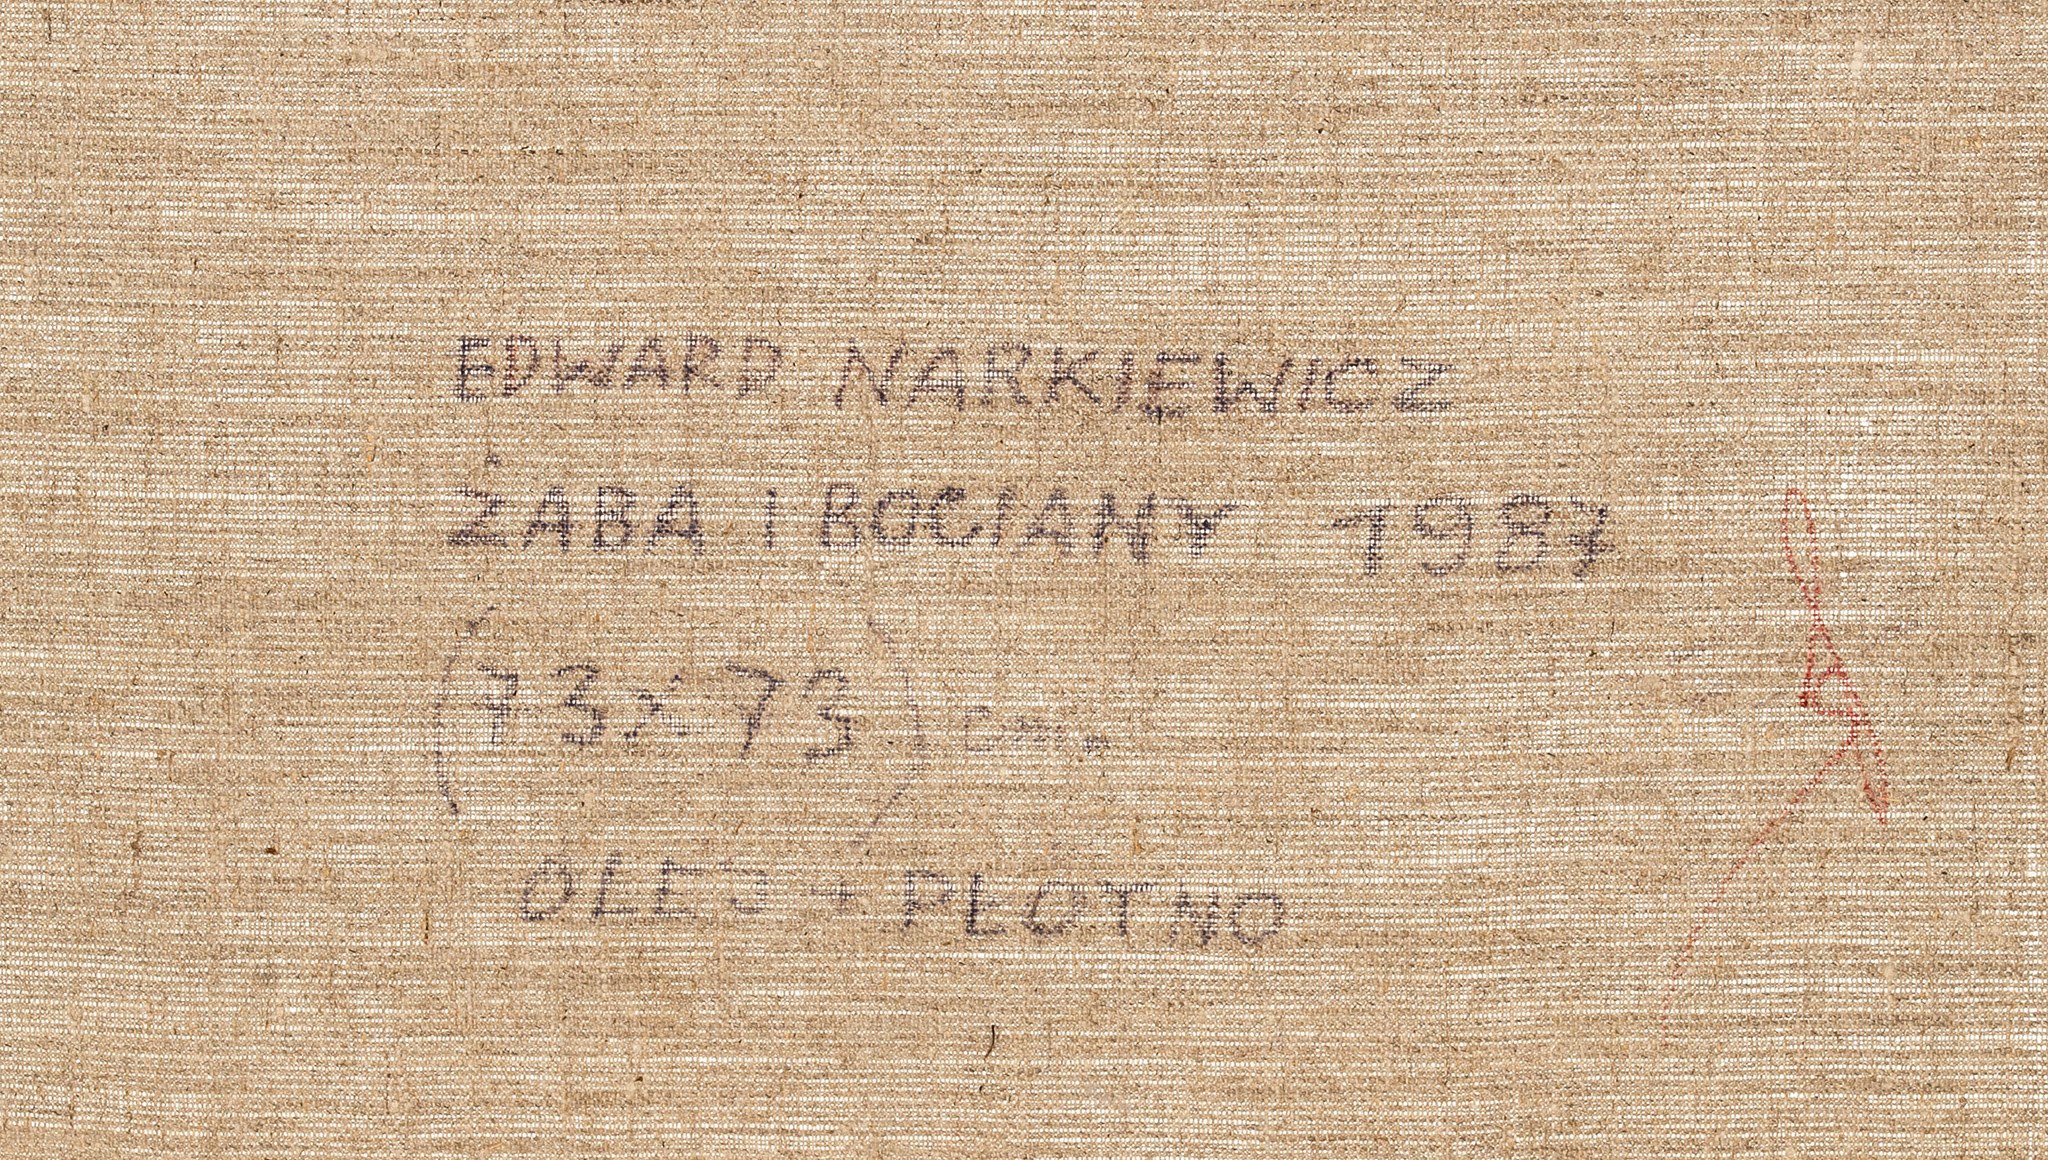 EDWARD NARKIEWICZ
ŻABA I BOCIANY 1987
(73x73) cm.
OLEJ + PŁOTNO